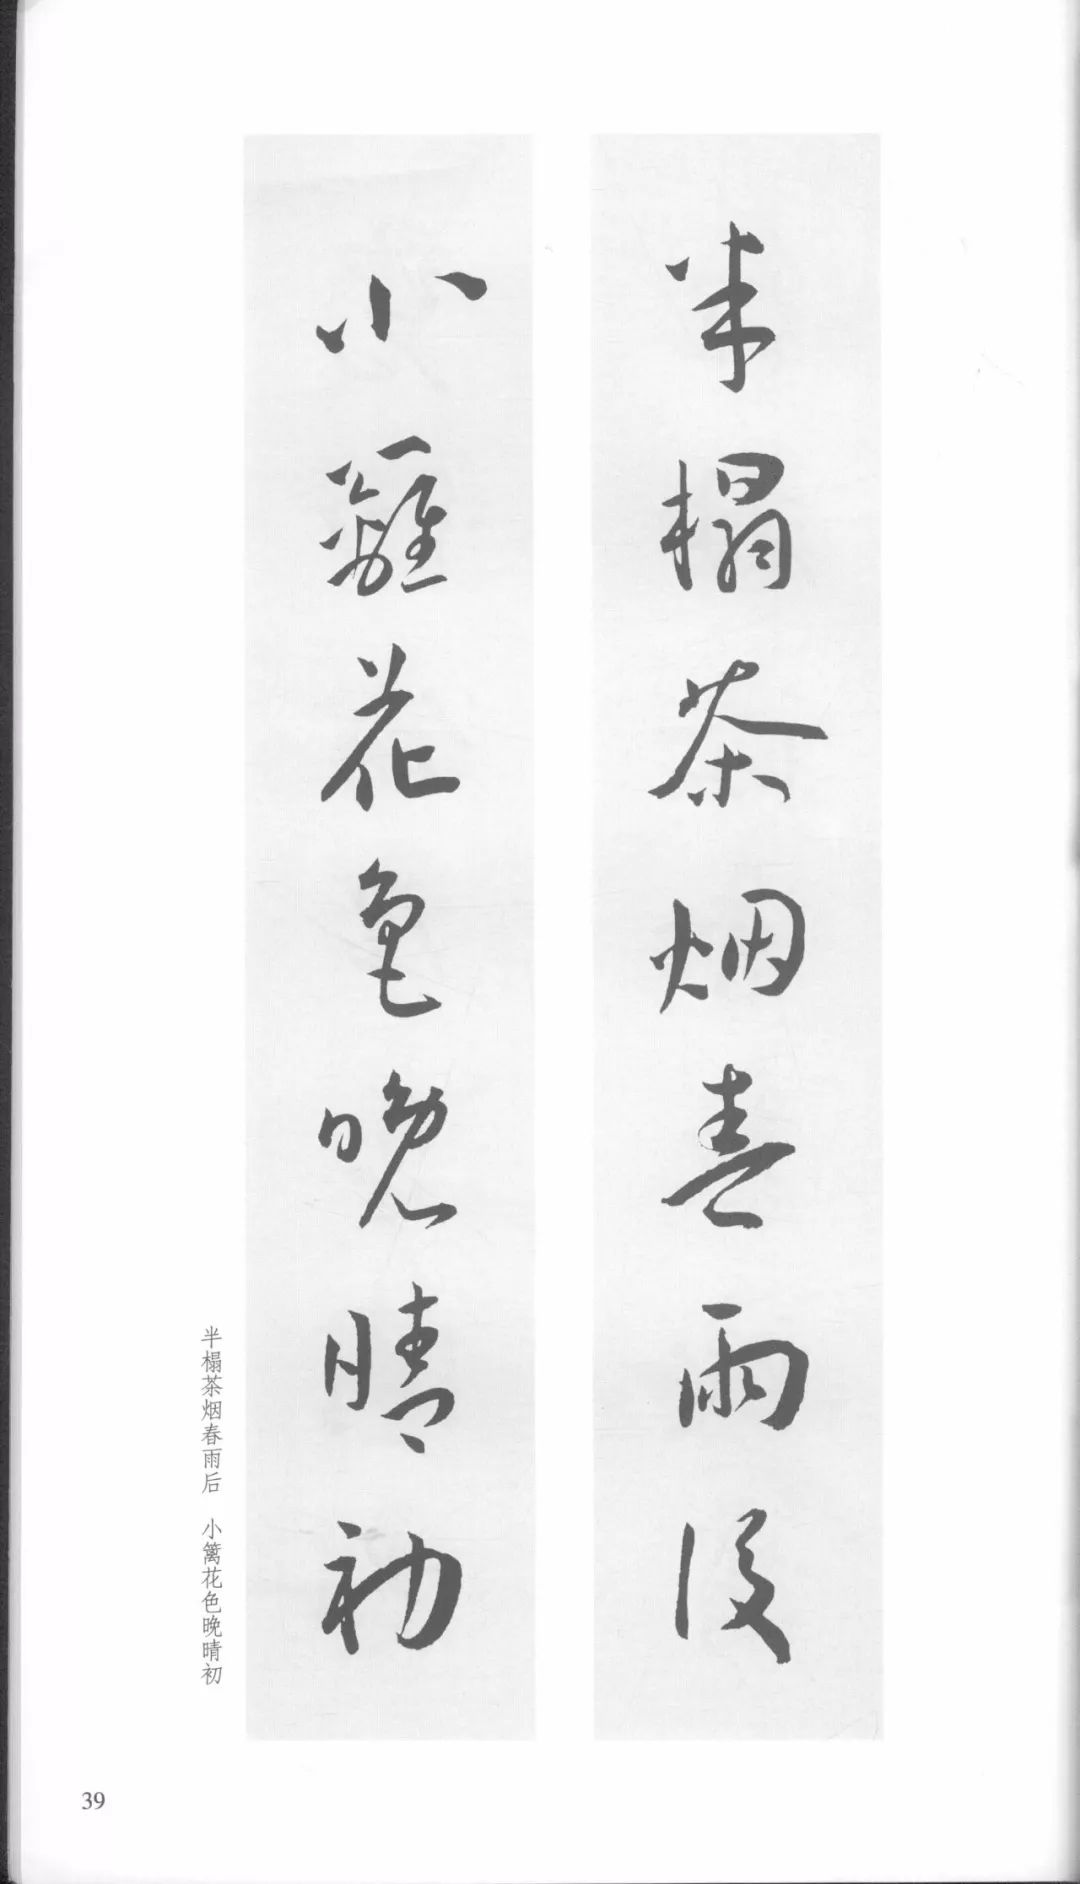 半榻茶烟春雨後
小籬花色晚晴初
半榻茶烟春雨后　小篱花色晚晴初
39